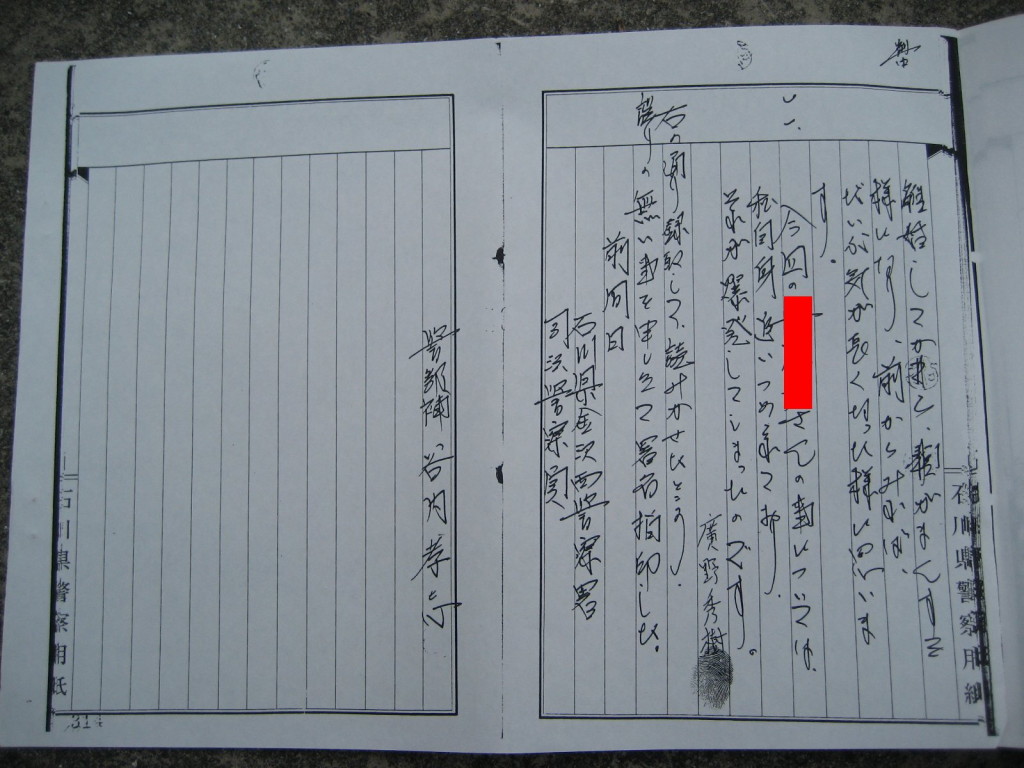 離婚してか来し、我がまんする
様になり、前からみれば、
だいぶ気が長くなった様に思いま
す。
今回の
さんの事については、
私自身追いつめられており、
それが爆発してしまったのです。
廣野秀樹
右の通り録取して、読みきかせたところ、
誤りの無い事を申し立て署名指印した。
前同日
石川県金沢西警察署
司法警察員
警部補 谷内孝志
石川県警察用紙
石川県警察用紙
314